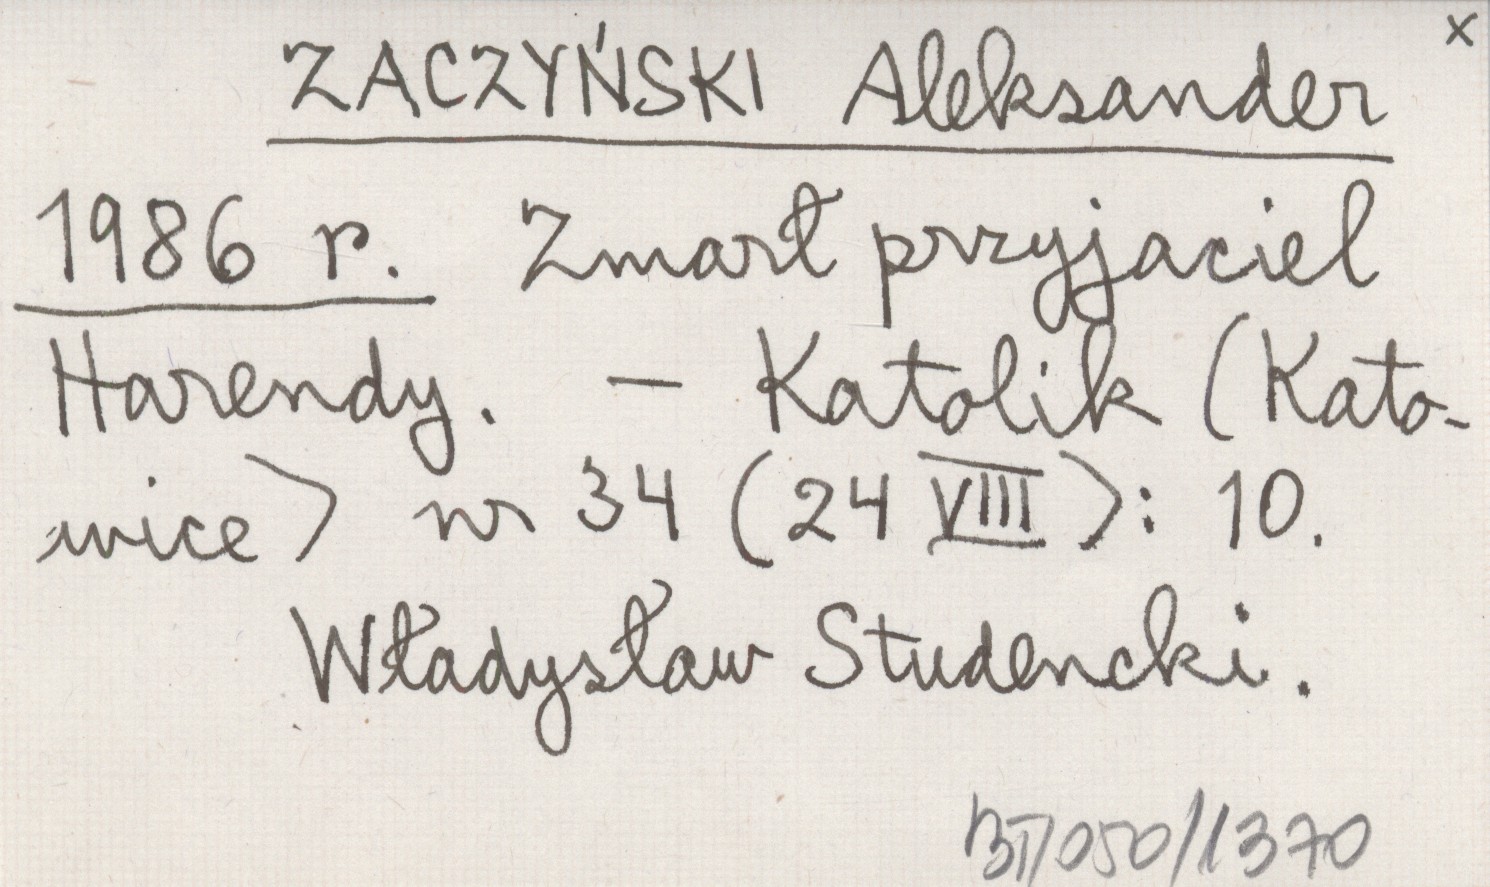 x
ZACZYŃSKI Aleksander
1986 r. Zmarł przyjaciel
Harendy. — Katolik (Kato-
wice) nr 34 (24 VIII): 10.
Władysław Studencki.
BT/050/1370